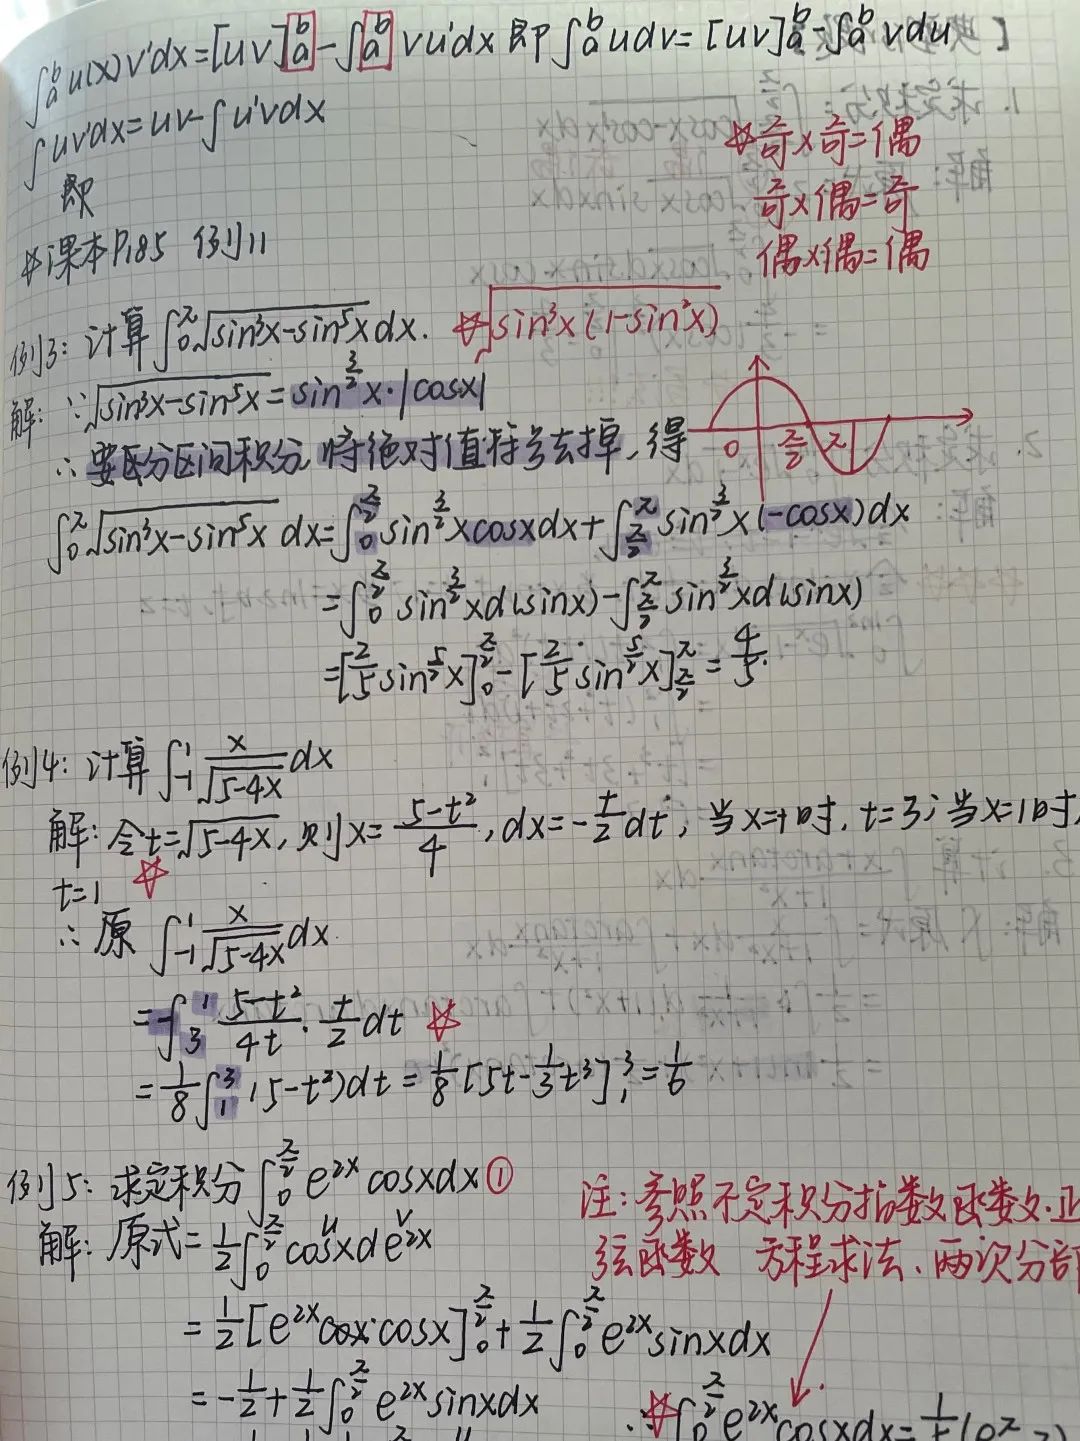 ∫ₐᵇ u(x)v'dx=[uv]ₐᵇ-∫ₐᵇ vu'dx 即 ∫ₐᵇ udv=[uv]ₐᵇ-∫ₐᵇ vdu 】
∫uv'dx=uv-∫u'vdx
即
☆奇×奇=偶
奇×偶=奇
偶×偶=偶
☆课本P185 例11
例3: 计算 ∫₀^π √(sin³x-sin⁵x) dx. ☆√(sin³x(1-sin²x))
解: ∵√(sin³x-sin⁵x)=sin^(3/2)x·|cosx|
∴要区分区间积分,将绝对值符号去掉,得
0 π/2 π
∫₀^π √(sin³x-sin⁵x) dx=∫₀^(π/2) sin^(3/2)xcosxdx+∫_(π/2)^π sin^(3/2)x(-cosx)dx
=∫₀^(π/2) sin^(3/2)xd(sinx)-∫_(π/2)^π sin^(3/2)xd(sinx)
=[2/5 sin^(5/2)x]₀^(π/2)-[2/5 sin^(5/2)x]_(π/2)^π=4/5.
例4: 计算 ∫₋₁¹ x/√(5-4x) dx
解: 令t=√(5-4x), 则x=(5-t²)/4, dx=-t/2 dt; 当x=-1时, t=3; 当x=1时,
t=1 ☆
∴原 ∫₋₁¹ x/√(5-4x) dx
=-∫₃¹ (5-t²)/4t · t/2 dt ☆
=1/8 ∫₁³ (5-t²)dt=1/8 [5t-1/3 t³]₁³=1/6
例5: 求定积分 ∫₀^(π/2) e^(2x) cosxdx ①
u v
解: 原式=1/2 ∫₀^(π/2) cosxde^(2x)
=1/2 [e^(2x) cosx]₀^(π/2)+1/2 ∫₀^(π/2) e^(2x) sinxdx
=-1/2+1/2 ∫₀^(π/2) e^(2x) sinxdx
注: 参照不定积分指数函数.正
弦函数 方程求法、两次分部
∴☆∫₀^(π/2) e^(2x) cosxdx=1/5(e^π-2)